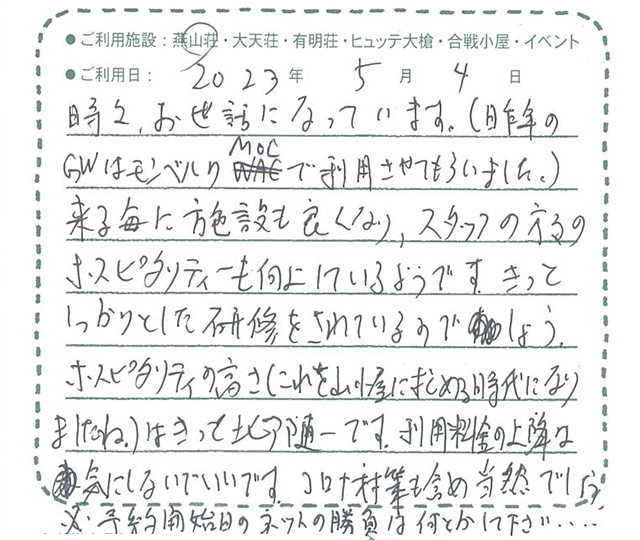 ●ご利用施設：燕山荘・大天荘・有明荘・ヒュッテ大槍・合戦小屋・イベント
●ご利用日： 2023年 5月 4日
時々、お世話になっています。（昨年の
GWはモンベルの MOC で利用させてもらいました。）
来る毎に施設も良くなり、スタッフの方々の
ホスピタリティーも向上しているようです。きっと
しっかりとした研修をされているのでしょう。
ホスピタリティの高さ（これを山小屋に求める時代になり
ましたね。）はきっと北ア随一です。利用料金の上降は
気にしないでいいです。コロナ対策も含め当然でしょう
※予約開始日のネットの勝負は何とかして下さい……